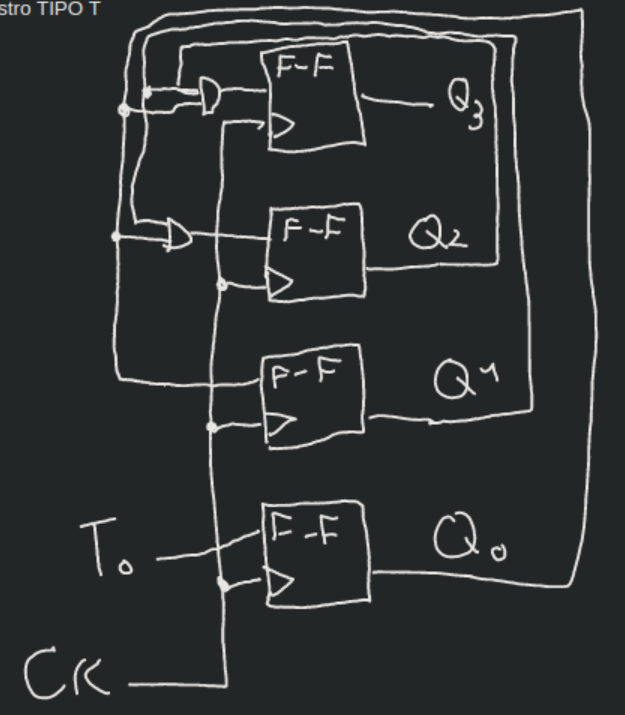 stro TIPO T
F-F
Q3
F-F
Q2
F-F
Q1
T0
F-F
Q0
CK